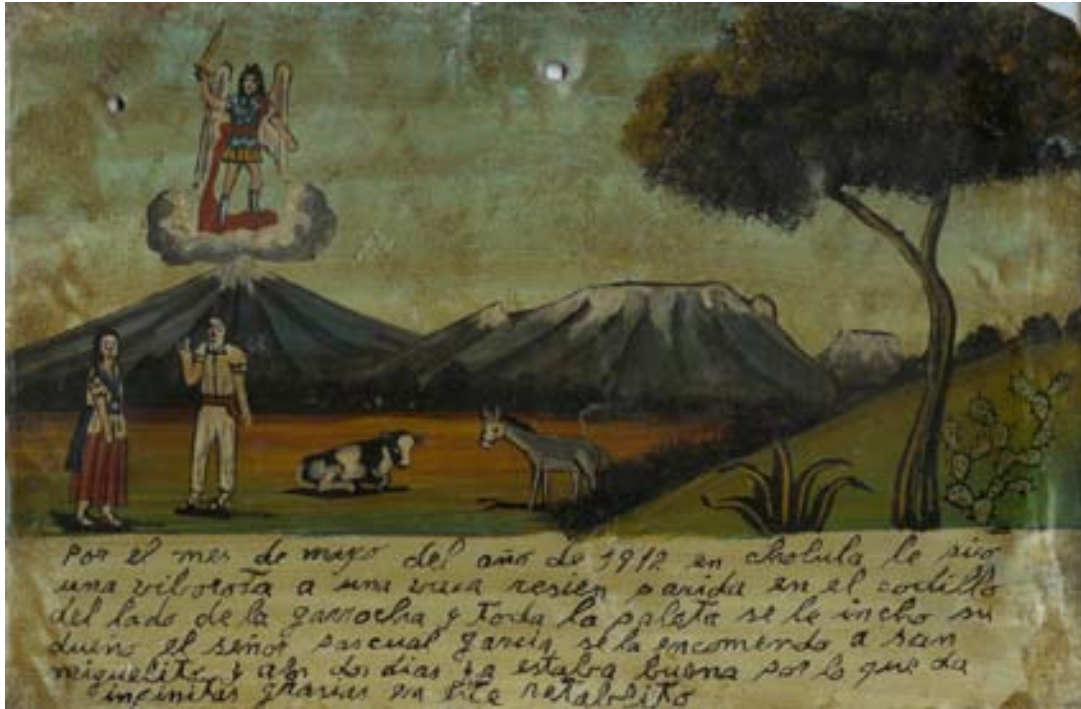 Por el mes de mayo del año de 1912 en cholula le pico
una viborota a una vaca resien parida en el codillo
del lado de la garrocha y toda la paleta se le incho su
dueño el señor pascual garcia se la encomendo a san
miguelito y a los dos dias ya estaba buena por lo que da
infinitas gracias en este retablito